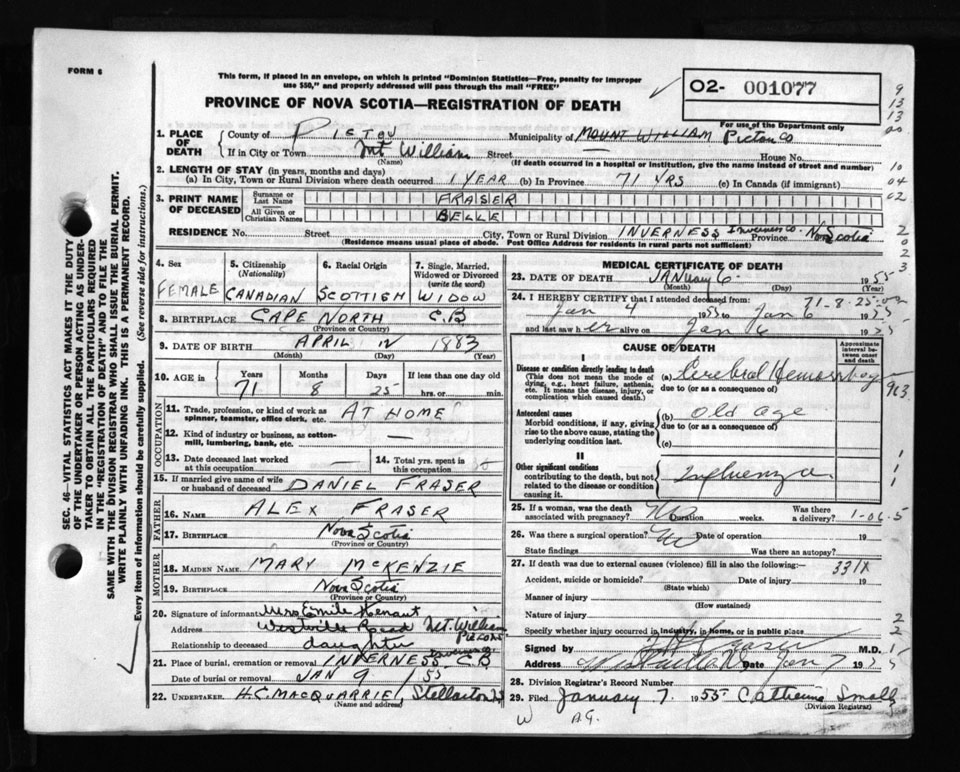 FORM 6
This form, if placed in an envelope, on which is printed "Dominion Statistics—Free, penalty for improper
use $50," and properly addressed will pass through the mail "FREE"
02- 001077
PROVINCE OF NOVA SCOTIA—REGISTRATION OF DEATH
For use of the Department only
1. PLACE OF DEATH
County of PICTOU Municipality of MOUNT WILLIAM Pictou Co
If in City or Town Mt William Street House No.
(Name) (If death occurred in a hospital or institution, give the name instead of street and number)
2. LENGTH OF STAY (in years, months and days)
(a) In City, Town or Rural Division where death occurred 1 YEAR (b) In Province 71 YRS (c) In Canada (if immigrant)
3. PRINT NAME OF DECEASED
Surname or Last Name FRASER
All Given or Christian Names BELLE
RESIDENCE No. Street City, Town or Rural Division INVERNESS Inverness Co. Province N. Scotia
(Residence means usual place of abode. Post Office Address for residents in rural parts not sufficient)
4. Sex FEMALE
5. Citizenship (Nationality) CANADIAN
6. Racial Origin SCOTTISH
7. Single, Married, Widowed or Divorced (write the word) WIDOW
8. BIRTHPLACE CAPE NORTH C.B
(Province or Country)
9. DATE OF BIRTH APRIL 12 1883
(Month) (Day) (Year)
10. AGE in Years Months Days If less than one day old
71 8 25 hrs. or min.
OCCUPATION
11. Trade, profession, or kind of work as spinner, teamster, office clerk, etc. AT HOME
12. Kind of industry or business, as cotton-mill, lumbering, bank, etc. —
13. Date deceased last worked at this occupation
14. Total yrs. spent in this occupation
15. If married give name of wife or husband of deceased DANIEL FRASER
FATHER
16. NAME ALEX FRASER
17. BIRTHPLACE Nova Scotia
(Province or Country)
MOTHER
18. MAIDEN NAME MARY MCKENZIE
19. BIRTHPLACE Nova Scotia
(Province or Country)
20. Signature of informant Mrs Emile Henaut
Address Westville Road Mt. William
Relationship to deceased daughter
21. Place of burial, cremation or removal INVERNESS C.B
Date of burial or removal JAN 9 / 55
22. UNDERTAKER H.C. MACQUARRIE Stellarton
(Name and address)
MEDICAL CERTIFICATE OF DEATH
23. DATE OF DEATH JANuary 6 1955
(Month) (Day) (Year)
71-8-25
24. I HEREBY CERTIFY that I attended deceased from:
Jan 4 1955 to Jan 6 1955
and last saw her alive on Jan 6 1955
CAUSE OF DEATH
Approximate interval between onset and death
I
Disease or condition directly leading to death
(This does not mean the mode of dying, e.g., heart failure, asthenia, etc. It means the disease, injury, or complication which caused death.)
(a) Cerebral Hemorrhag
due to (or as a consequence of)
Antecedent causes
Morbid conditions, if any, giving rise to the above cause, stating the underlying condition last.
(b) old age
due to (or as a consequence of)
(c)
II
Other significant conditions
contributing to the death, but not related to the disease or condition causing it.
Influenza
25. If a woman, was the death associated with pregnancy? No Duration weeks. Was there a delivery?
1-06.5
26. Was there a surgical operation? No Date of operation 19
State findings Was there an autopsy?
27. If death was due to external causes (violence) fill in also the following:— 331X
Accident, suicide or homicide? Date of injury 19
(State which)
Manner of injury
(How sustained)
Nature of injury
Specify whether injury occurred in industry, in home, or in public place
Signed by M.D.
Address Date Jan 7 1955
28. Division Registrar's Record Number
29. Filed January 7. 1955 Catherine Small
(Division Registrar)
W A.G.
SEC. 46—VITAL STATISTICS ACT MAKES IT THE DUTY
OF THE UNDERTAKER OR PERSON ACTING AS UNDERTAKER TO OBTAIN ALL THE PARTICULARS REQUIRED
IN THE "REGISTRATION OF DEATH" AND TO FILE THE
SAME WITH THE DIVISION REGISTRAR WHO SHALL ISSUE THE BURIAL PERMIT.
WRITE PLAINLY WITH UNFADING INK. THIS IS A PERMANENT RECORD.
Every item of information should be carefully supplied. (See reverse side for instructions.)
9
13
13
00
10
04
02
2
0
2
3
963
1
1
2
2